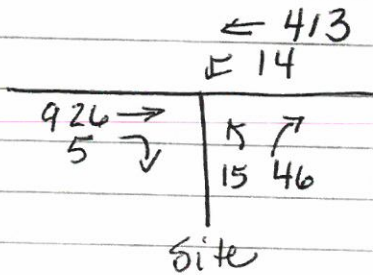 ← 413
↙ 14
926 →
5 ↴
↖ ↗
15 46
Site